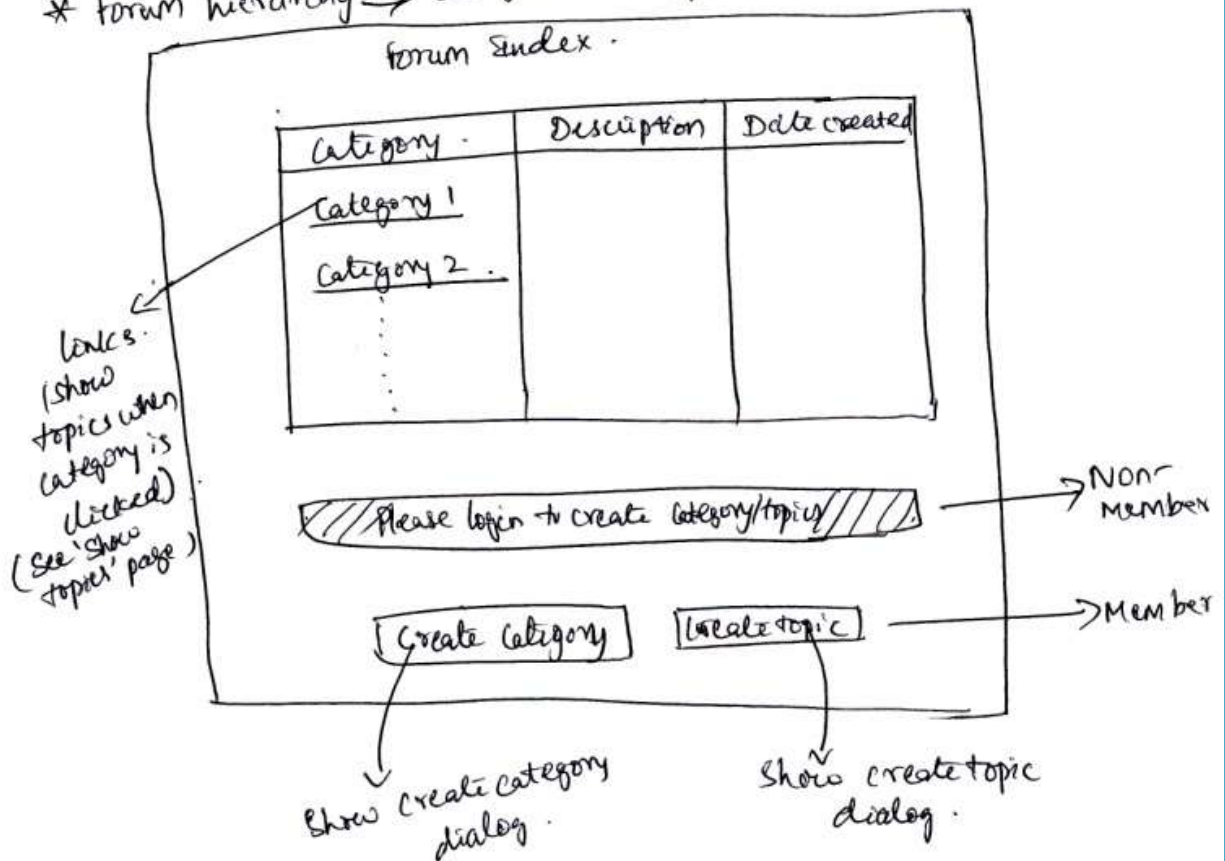 * Forum hierarchy →
Forum Index.
Category. Description Date created
Category 1
Category 2.
links.
(show
topics when
category is
clicked)
(see 'show
topics' page)
Please login to create category/topics
Non-
member
Create Category Create topic
Member
Show create category
dialog.
Show create topic
dialog.